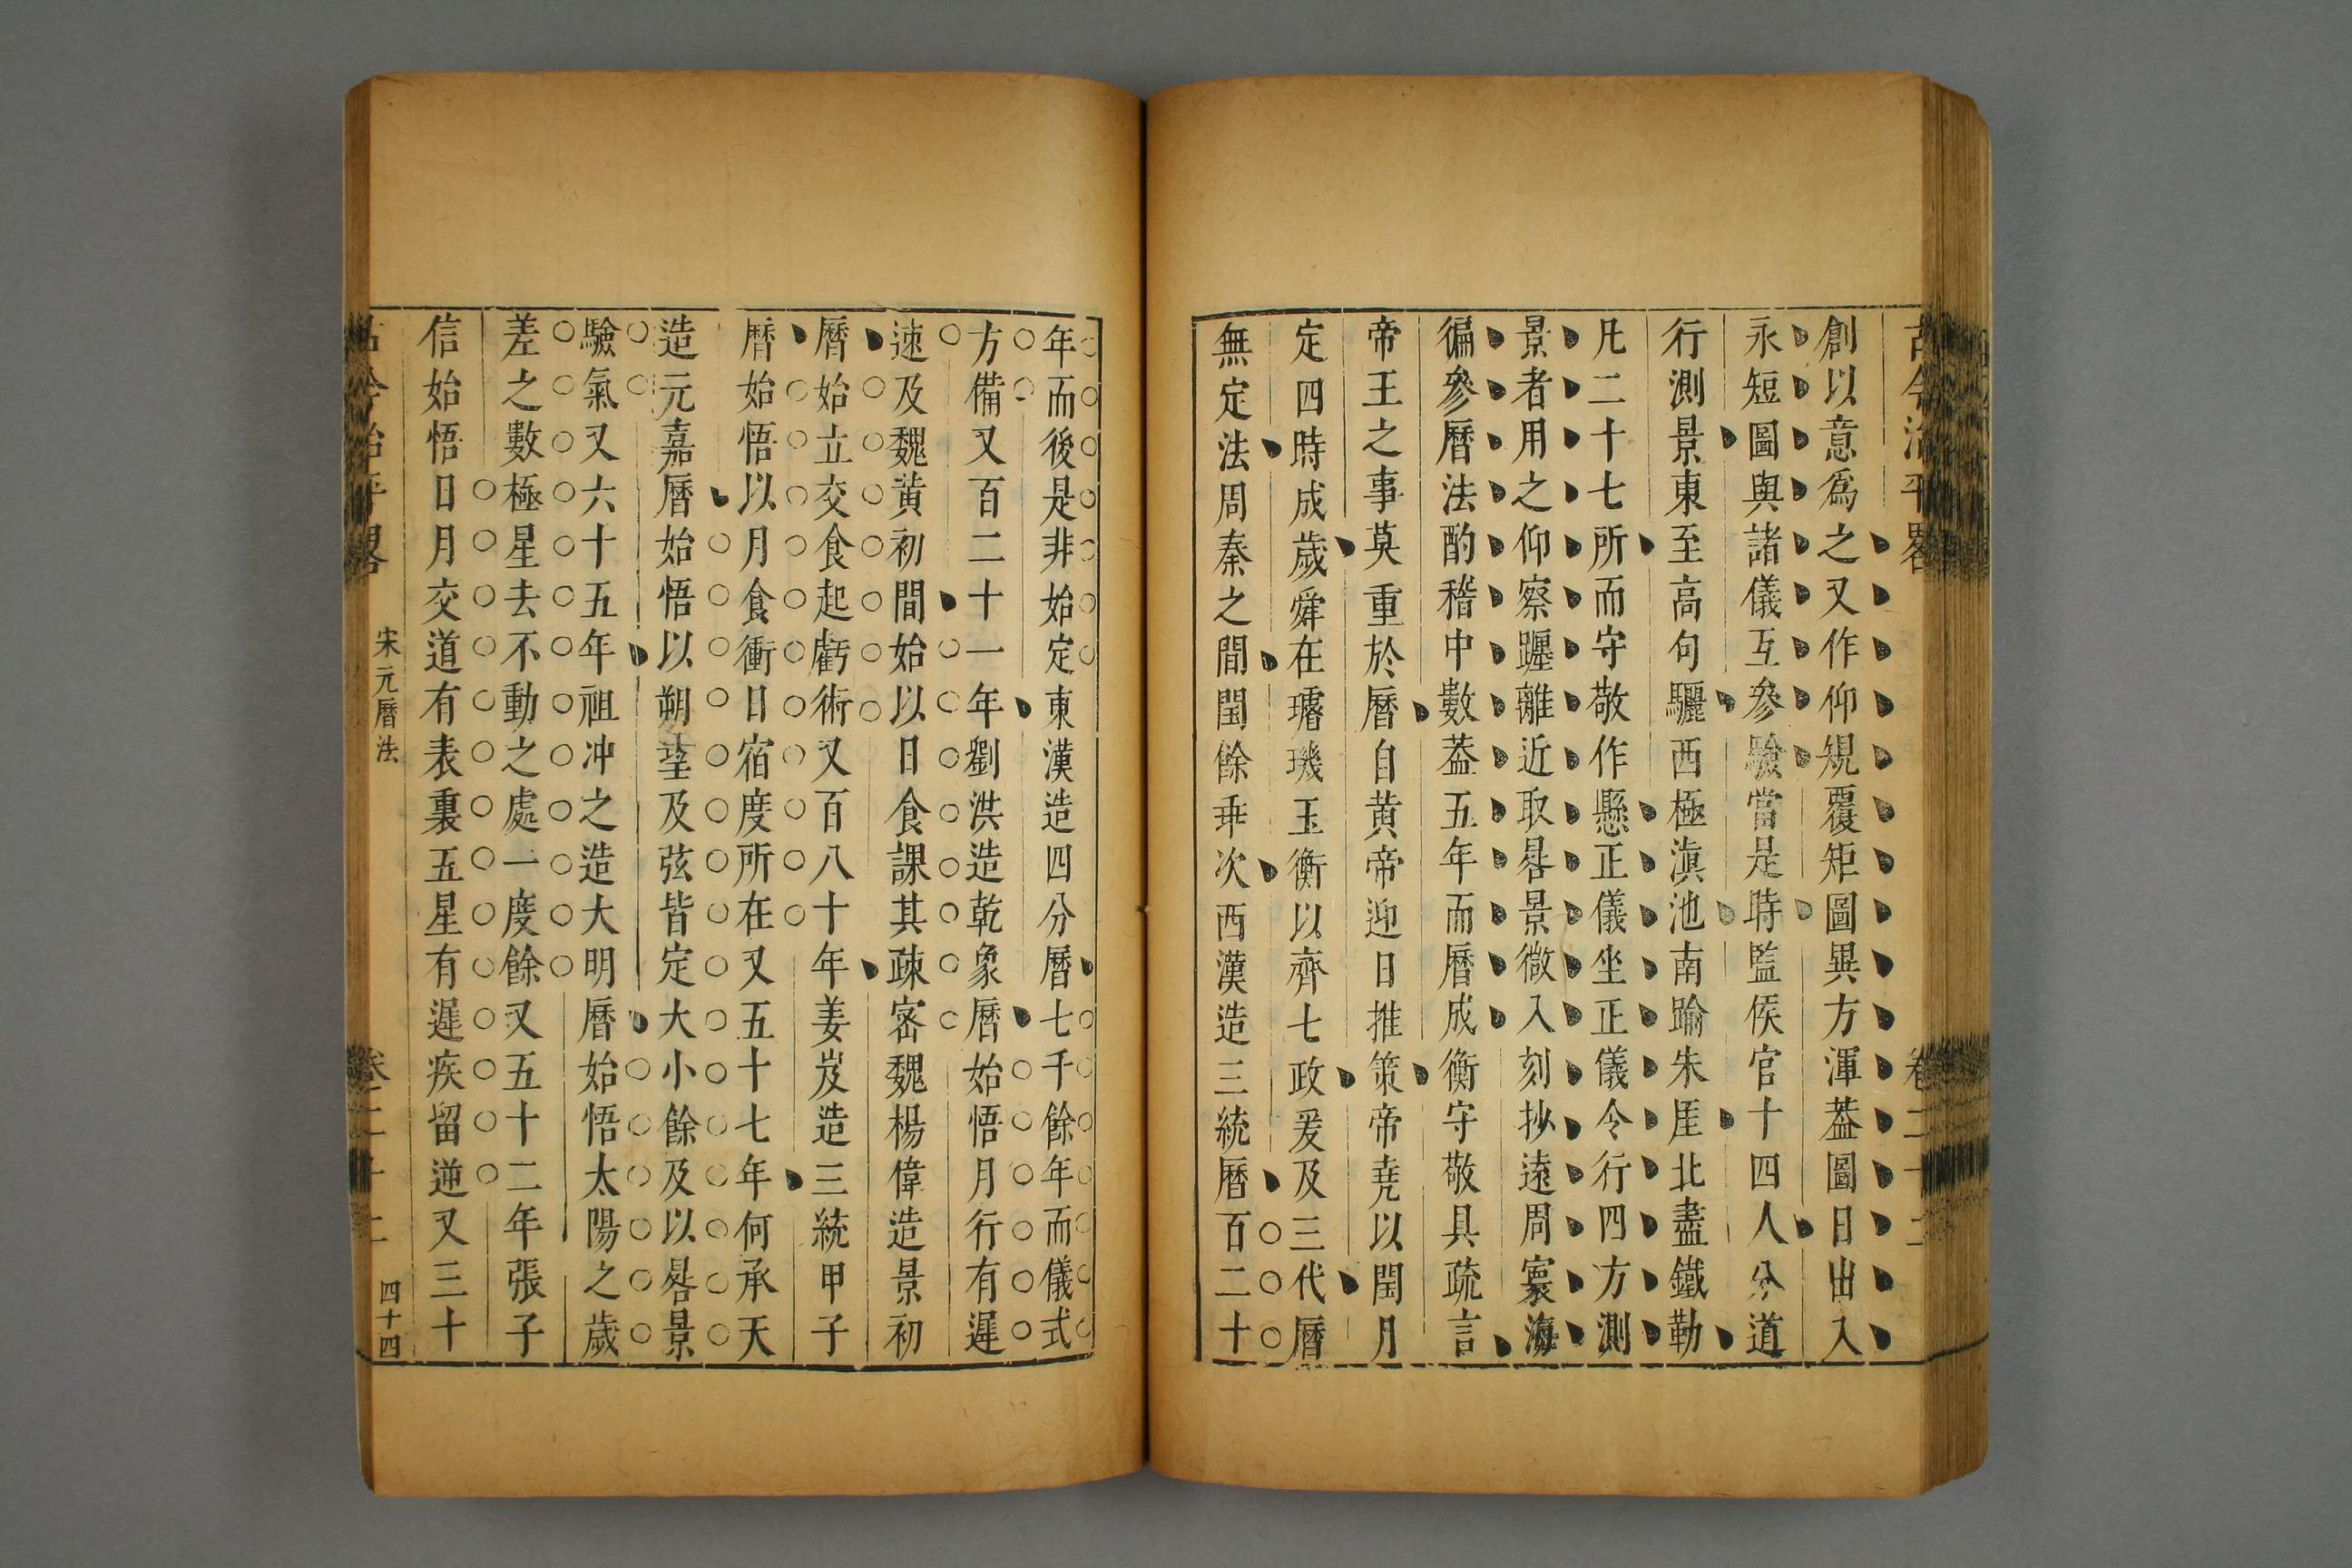 古今治平畧 卷二十二
創以意爲之又作仰規覆矩圖異方渾葢圖日出入
永短圖與諸儀互參驗當是時監候官十四人分道
行測景東至高句驪西極滇池南踰朱厓北盡鐵勒
凡二十七所而守敬作懸正儀坐正儀令行四方測
景者用之仰察躔離近取晷景微入刻抄遠周寰海
徧參曆法酌稽中數葢五年而曆成衡守敬具疏言
帝王之事莫重於曆自黃帝迎日推策帝尭以閏月
定四時成歲舜在璿璣玉衡以齊七政爰及三代曆
無定法周秦之間閏餘乖次西漢造三統曆百二十
年而後是非始定東漢造四分曆七千餘年而儀式
方備又百二十一年劉洪造乾象曆始悟月行有遲
速及魏黃初間始以日食課其疎宻魏楊偉造景初
曆始立交食起虧術又百八十年姜岌造三統甲子
曆始悟以月食衝日宿度所在又五十七年何承天
造元嘉曆始悟以朔望及弦皆定大小餘及以晷景
驗氣又六十五年祖冲之造大明曆始悟太陽之歲
差之數極星去不動之處一度餘又五十二年張子
信始悟日月交道有表裏五星有遲疾留逆又三十
古今治平畧 宋元曆法 卷二十二 四十四